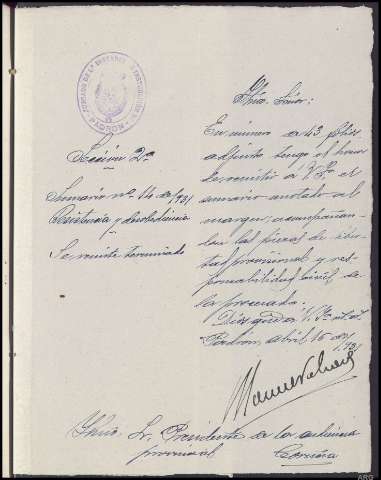 JUZGADO DE 1ª INSTANCIA E INSTRUCCIÓN
PADRON
Sección 2ª
Sumario nº 14 de 1931
Resistencia y desobediencia
Se remite terminado
Ilmo. Señor:
En número de 43 folios
adjunto tengo el honor
de remitir a V.I. el
sumario anotado al
margen, acompañan-
las piezas de liber-
tad provisional y res-
ponsabilidad civil de
la procesada.
Dios guarde V.I. m. a.
Padrón, abril 15 de
1931
Manuel
Ilmo. Sr. Presidente de la audiencia
provincial Coruña
ARG